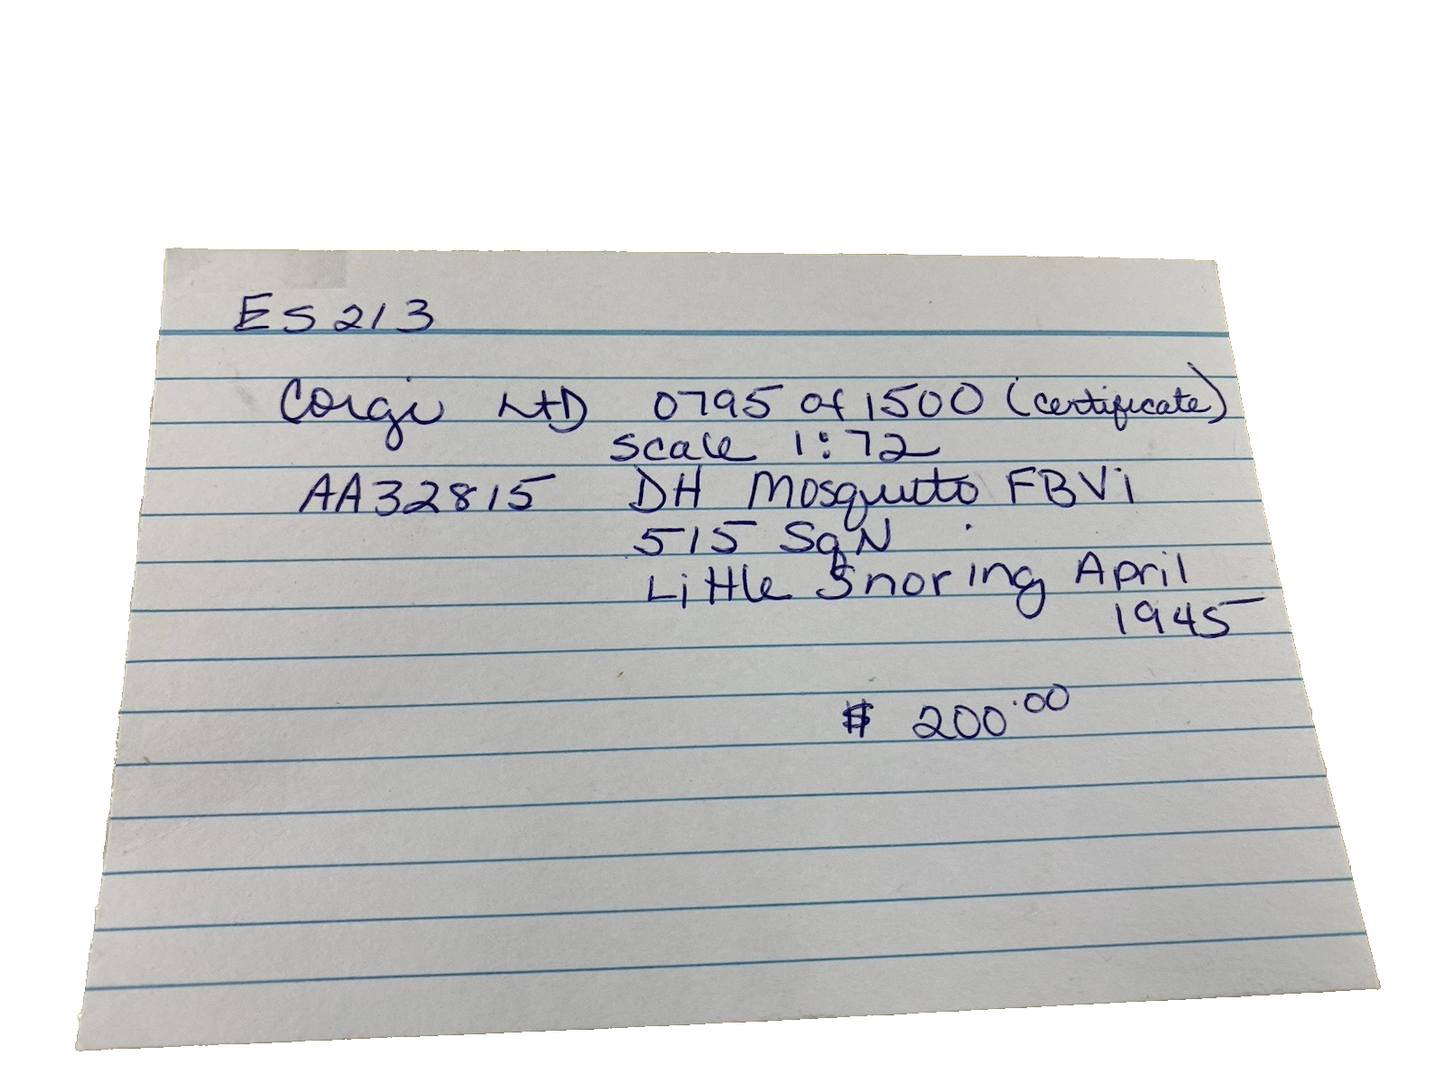 ES213
Corgi LtD 0795 of 1500 (certificate)
scale 1:72
AA32815 DH Mosquitto FBVi
515 SqN
Little Snoring April
1945
$ 200.00